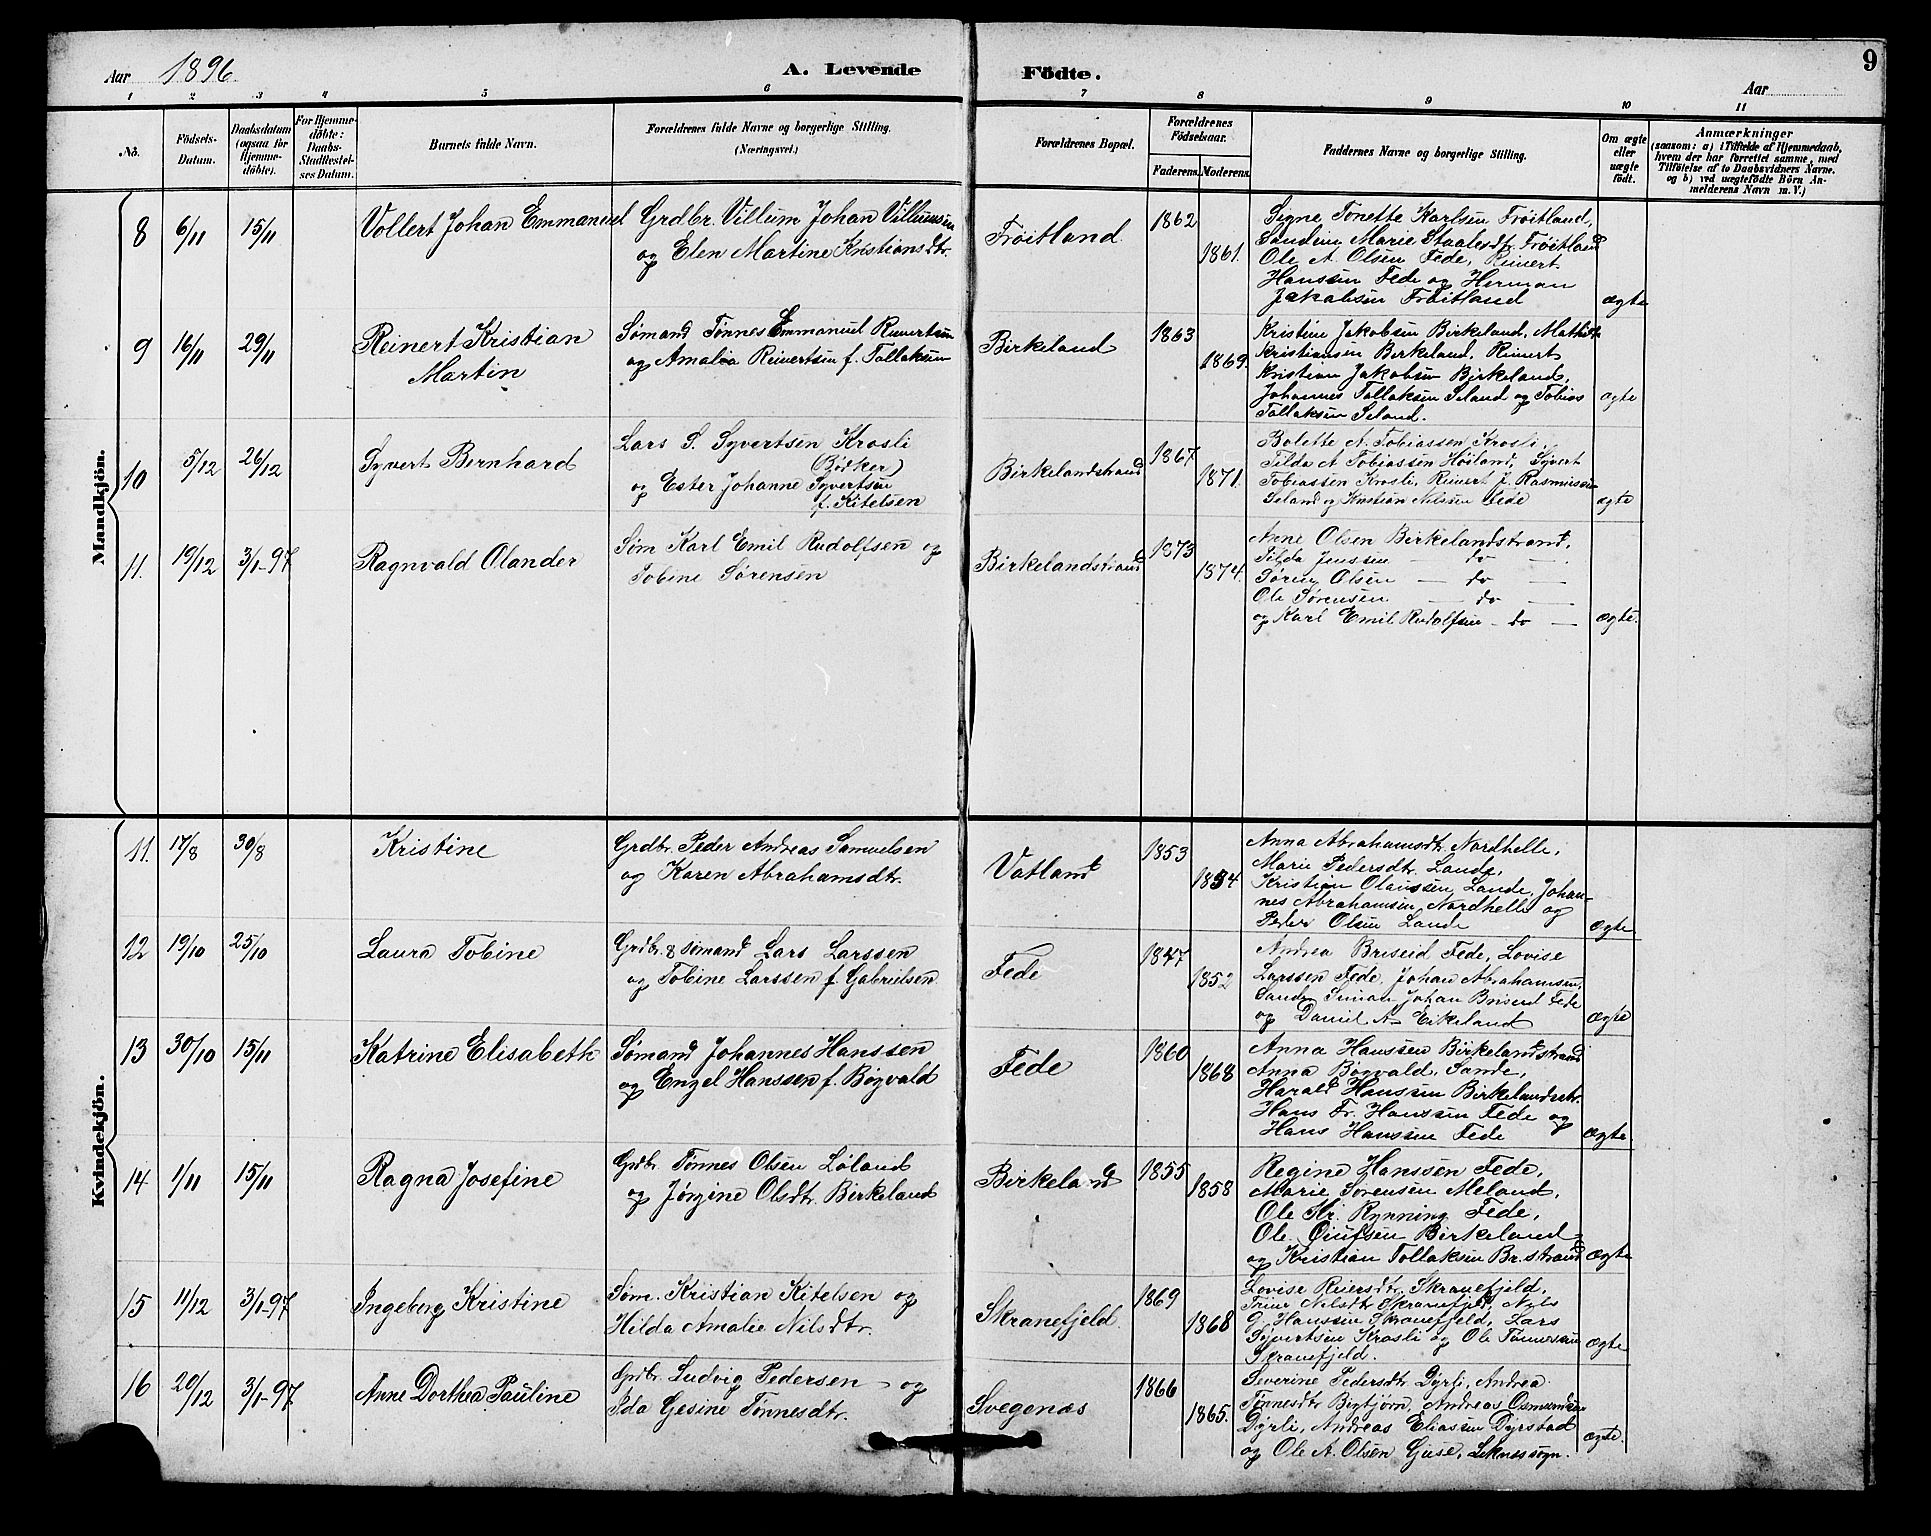 Aar 1896.
A. Levende Födte.
Aar
9
1 2 3 4 5 6 7 8 9 10 11
No.
Födsels-
Datum.
Daabsdatum
(ogsaa for
Hjemme-
döbte).
For Hjemme-
döbte:
Daabs-
Stadfæstel-
ses Datum.
Barnets fulde Navn.
Forældrenes fulde Navne og borgerlige Stilling.
(Næringsvei.)
Forældrenes Bopæl.
Forældrenes
Födselsaar.
Faderens. Moderens.
Faddernes Navne og borgerlige Stilling.
Om ægte
eller
uægte
födt.
Anmærkninger
(saasom: a) i Tilfælde af Hjemmedaab,
hvem der har forrettet samme, med
Tilföielse af to Daabsvidners Navne.
og b) ved uægtefödte Börn An-
melderens Navn m. V.)
Mandkjön.
8 6/11 15/11 Vollert Johan Emmanuel
Grdbr. Villum Johan Villumsen
og Elen Martine Kristiansdtr.
Frøitland. 1862 1861.
Signe Tonette Karlsen Frøitland,
Sandine Marie Staalesdtr. Frøitland
Ole A. Olsen Fede, Reinert
Hanssen Fede og Herman
Jakobsen Frøitland
ægte
9 16/11 29/11 Reinert Kristian
Martin
Sømand Tønnes Emmanuel Reinertsen
og Amalia Reinertsen f. Tollaksen
Birkeland 1863 1869.
Kristine Jakobsen Birkeland, Mathil
Kristiansen Birkeland, Reinert
Kristian Jakobsen Birkeland,
Johannes Tollaksen Seland og Tobias
Tollaksen Seland.
ægte
10 5/12 26/12 Syvert Bernhard
Lars S. Syvertsen Krosli
(Bødker)
og Ester Johanne Syvertsen
f. Kitelsen
Birkelandstrand 1867 1871.
Bolette A. Tobiassen Krosli,
Tilda A. Tobiassen Høiland, Syvert
Tobiassen Krosli, Reinert J. Rasmussen
Seland og Kristian Nilsen Fede
ægte
11. 19/12 3/1-97 Ragnvald Olander
Søm Karl Emil Rudolfsen og
Tobine Sørensen
Birkelandstrand 1873 1874.
Anne Olsen Birkelandstrand,
Tilda Jenssen — do —
Søren Olsen — do —
Ole Sørensen — do —
og Karl Emil Rudolfsen - do —
ægte.
Kvindekjön.
11. 17/8 30/8 Kristine
Grdbr. Peder Andreas Samuelsen
og Karen Abrahamsdtr.
Vatland 1853 1854
Anna Abrahamsdtr. Nordhelle,
Marie Pedersdtr. Lande,
Kristian Olaussen Lande, Johan-
nes Abrahamsen Nordhelle og
Peder Olsen Lande
Ægte
12 19/10 25/10 Laura Tobine
Grdbr. & sømand Lars Larssen
og Tobine Larssen f. Gabrielsen
Fede 1847 1852
Andrea Briseid Fede, Lovise
Larssen Fede, Johan Abrahamsen,
Sande, Simon Johan Briseid Fede
og Daniel A- Eikeland
Ægte
13 30/10 15/11 Katrine Elisabeth
Sømand Johannes Hanssen
og Engel Hanssen f. Bøgvald
Fede 1860 1868
Anna Hanssen Birkelandstrand
Anna Bøgvald, Sande,
Harald Hanssen Birkelandsstr.
Hans Fr. Hanssen Fede og
Hans Hanssen Fede
Ægte
14 1/11 15/11 Ragna Josefine
Grdbr. Tønnes Olsen Løland
og Jørgine Olsdtr. Birkeland
Birkeland 1855 1858
Regine Hanssen Fede,
Marie Sørensen Meland,
Ole Kr. Rynning Fede,
Ole Oiufsen Birkeland
og Kristian Tollaksen Br.strand
Ægte
15 11/12 3/1-97 Ingeborg Kristine
Søm. Kristian Kitelsen og
Hilda Amalie Nilsdtr.
Skranefjeld 1869 1868
Lovise Reiersdtr. Skranefjeld,
Trine Nilsdtr Skranefjeld, Nils
G. Hanssen Skranefjeld, Lars
Syvertsen Krosli og Ole Tønnessen
Skranefjeld.
Ægte
16 20/12 3/1-97 Anne Dorthea Pauline
Grdbr. Ludvig Pedersen og
Ida Gesine Tønnesdtr.
Svegenæs 1866 1865.
Severine Pedersdtr. Dyrli, Andrea
Tønnesdtr Bigtjørn, Andreas Osmundsen
Dyrli, Andreas Eliassen Dyrstad
og Ole A. Olsen Giese, Leknessogn.
ægte.